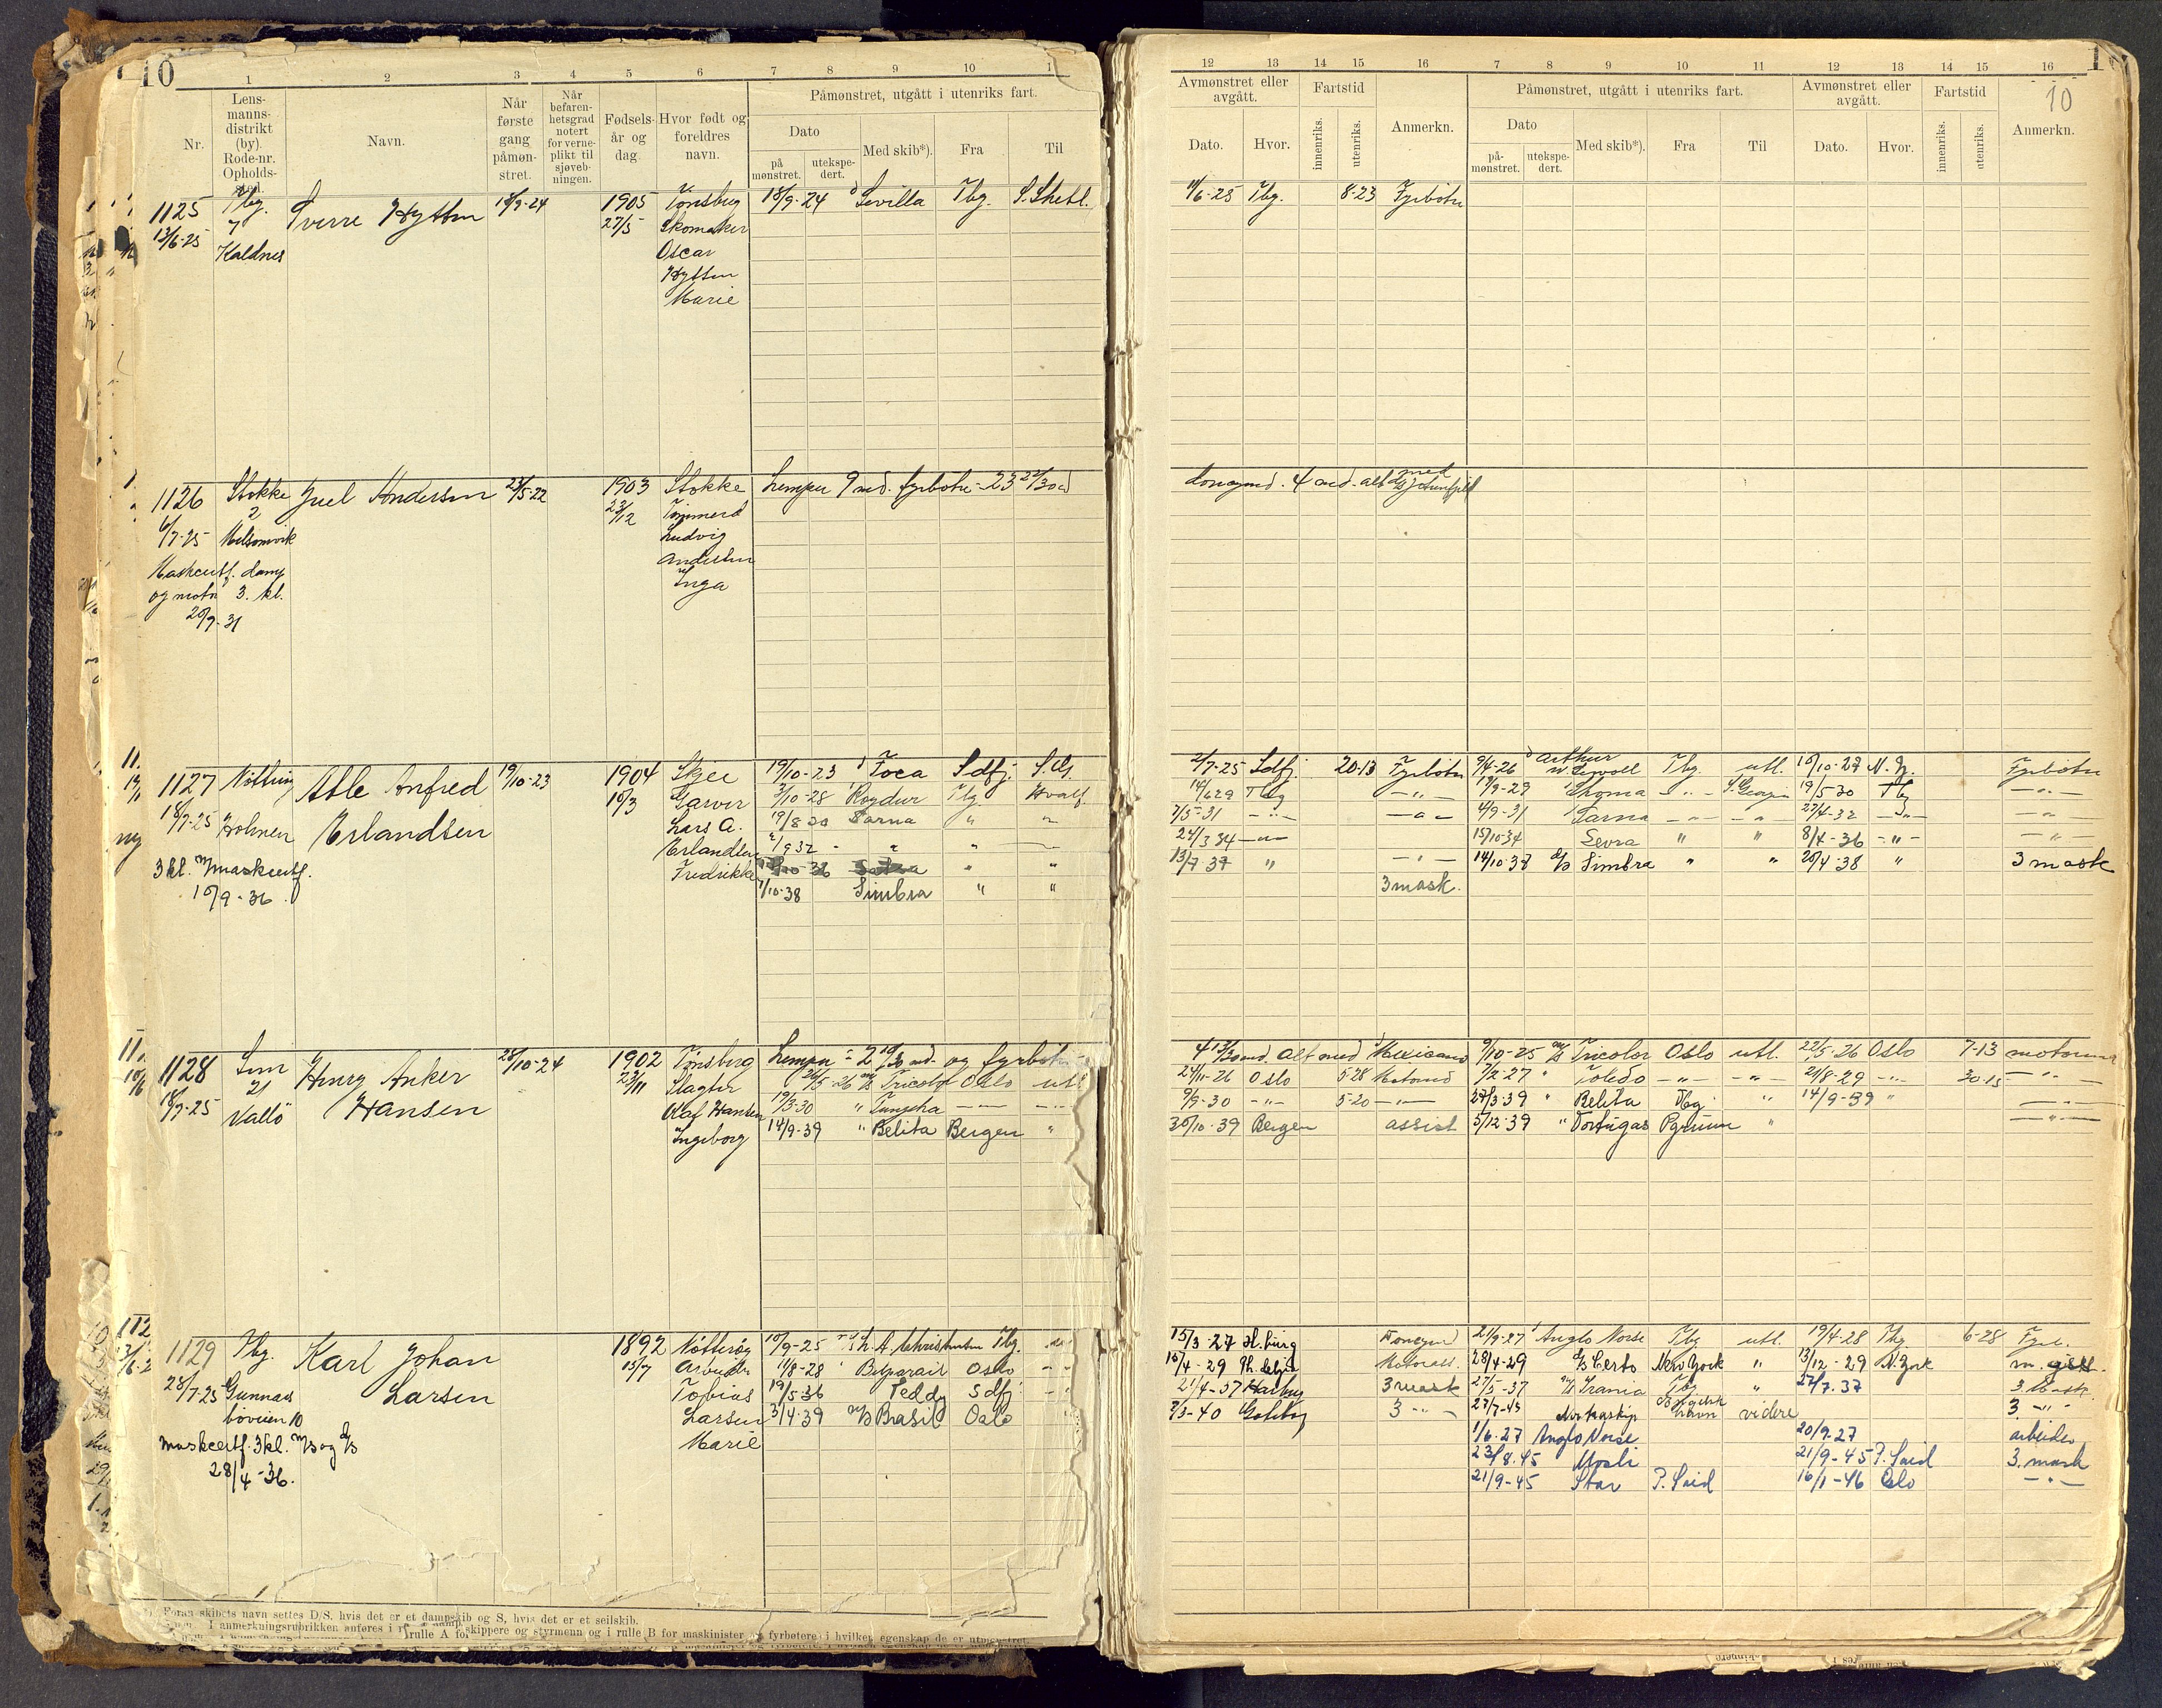 10
1 2 3 4 5 6 7 8 9 10 1
Nr.
Lens-
manns-
distrikt
(by).
Rode-nr.
Opholds-
sted.
Navn.
Når
første
gang
påmøn-
stret.
Når
befaren-
hetsgrad
notert
for verne-
plikt til
sjøveb-
ningen.
Fødsels-
år og
dag.
Hvor født og
foreldres
navn.
Påmønstret, utgått i utenriks fart.
Dato
på
mønstret.
utekspe-
dert.
Med skib*).
Fra
Til
12 13 14 15 16 7 8 9 10 11 12 13 14 15 16
Avmønstret eller
avgått.
Dato.
Hvor.
Fartstid
innenriks.
utenriks.
Anmerkn.
Påmønstret, utgått i utenriks fart.
Dato
på-
mønstret.
utekspe-
dert.
Med skib*).
Fra
Til
Avmønstret eller
avgått.
Dato.
Hvor.
Fartstid
innenriks.
utenriks.
Anmerkn.
10
1125 Tbg. Sverre Hytten 18/9-24 1905 Tønsberg 18/9-24 Sevilla Tbg. S. Shetl.
13/6-25 7 27/5 Skomaker
Kaldnes Oscar
Hytten
Marie
11/6-25 Tbg. 8-23 Fyrbøter
1126 Stokke Juel Andersen 23/5-22 1903 Stokke Lemper 9 md. fyrbøter - 23 27/30 d
6/7-25 2 23/12 Tømmerm
Melsomvik Ludvig
Maskcertf. damp Andersen
og motor 3. kl. Inga
20/7-31
donkeymd. 4 md. alt med
1127 Nøtterøy Atle Anfred 19/10-23 1904 Skjee 19/10-23 Foca Sdfj. S.G.
18/7-25 Holmen Erlandsen 10/3 Garver 3/10-28 Rogdur Tbg Hvalf.
Lars A. 19/8 30 Tarna " "
Erlandsen 2/9 32 " " "
3 kl. maskcertf. Fredrikke
10/9-36 1/10-38 Simbra " "
2/7-25 Sdfj. 20-13 Fyrbøter 9/4-26 Arthur Tbg. utl. 10/10-27 N.Y. Fyrbøter
14/6 29 Tbg - " - 17/9-29 Thoma - " - S. Georgia 19/5 30 Tbg - " -
2/5-31 - " - - " - 4/9-31 Tarna - " - - " - 27/4-32 - " - - " -
24/3 34 - " - 15/10 34 Sevra " " 8/4-36 - " - - " -
13/7-37 " - " - 14/10-37 d/s Simbra " " 20/4-38 " 3 mask
3 mask.
1128 Sem Henry Anker 28/10-24 1902 Tønsberg Lemper - 2 19/30 md. og fyrbøter
18/7-25 21 Hansen 23/11 Slagter 26/5-26 m/s Tricolor Oslo utl
Vallö Olaf Hansen 19/3-30 " Tungsha - " - - " -
Ingeborg 14/9-39 " Belita Bergen "
4 13/30 md. Alt med Mexicano 9/10-25 m/s Tricolor Oslo utl. 22/5-26 Oslo 7-13 motormd
24/11-26 Oslo 5-28 Motormd 7/2-27 " Toledo - " - - " - 21/8-29 - " - 30-15 - " -
9/9-30 - " - 5-20 - " - 28/3-39 " Belita Tbg " 14/9-39 " - " -
30/10-39 Bergen assist 5/12-39 " Tortugas Pgrunn " - " -
1129 Tbg. Karl Johan 1892 Nøtterøy 10/9-25 L. A. Christensen Tbg.
28/7-25 Gunnars Larsen 15/7 Arbeider 11/8-28 Belpareil Oslo - "
bøveien 10 Tobias 19/5-36 Teddy Sdfj - "
Larsen 3/4-39 m/s Brasil Oslo
maskcertf. 3 kl. m/s og d/s Marie
28/4-36.
15/3-27 H.burg Donkeymd 21/9-27 Anglo Norse Tbg utl. 19/4-28 Tbg 6-28 Fyrb.
10/4-29 Motorass. 28/4-29 d/s Certo New York " 13/12-29 N. York
21/4-37 Harburg 3 mask 27/5-37 m/s Irania Tbg " 27/7.37 3. mask
2/3-40 Gøteborg 3 - " - 27/7-43 videre 3. - " -
1/6.27 Anglo Norse 20/9.27 arbeider
23/8.45 Mosli 21/9-45 P. Said 3. mask
21/9-45 Star P. Said 16/1-46 Oslo - " -
Foran skibets navn settes D/S, hvis det er et dampskib og S, hvis det er et seilskib.
I anmerkningsrubrikken anføres i rulle A for skippere og styrmenn og i rulle B for maskinister og fyrbøtere i hvilken egenskap de er utmønstret